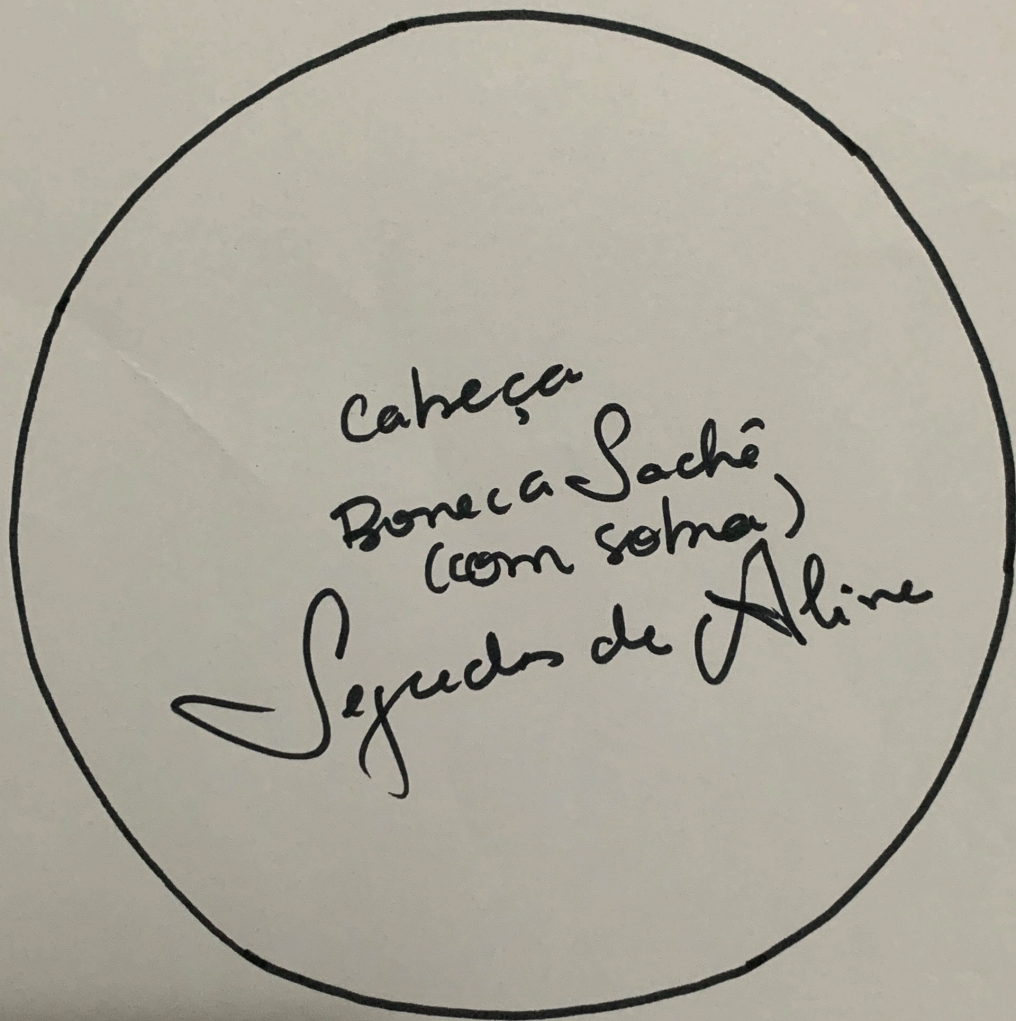 Cabeça
Boneca Sachê
(com sobra)
Segredos de Aline